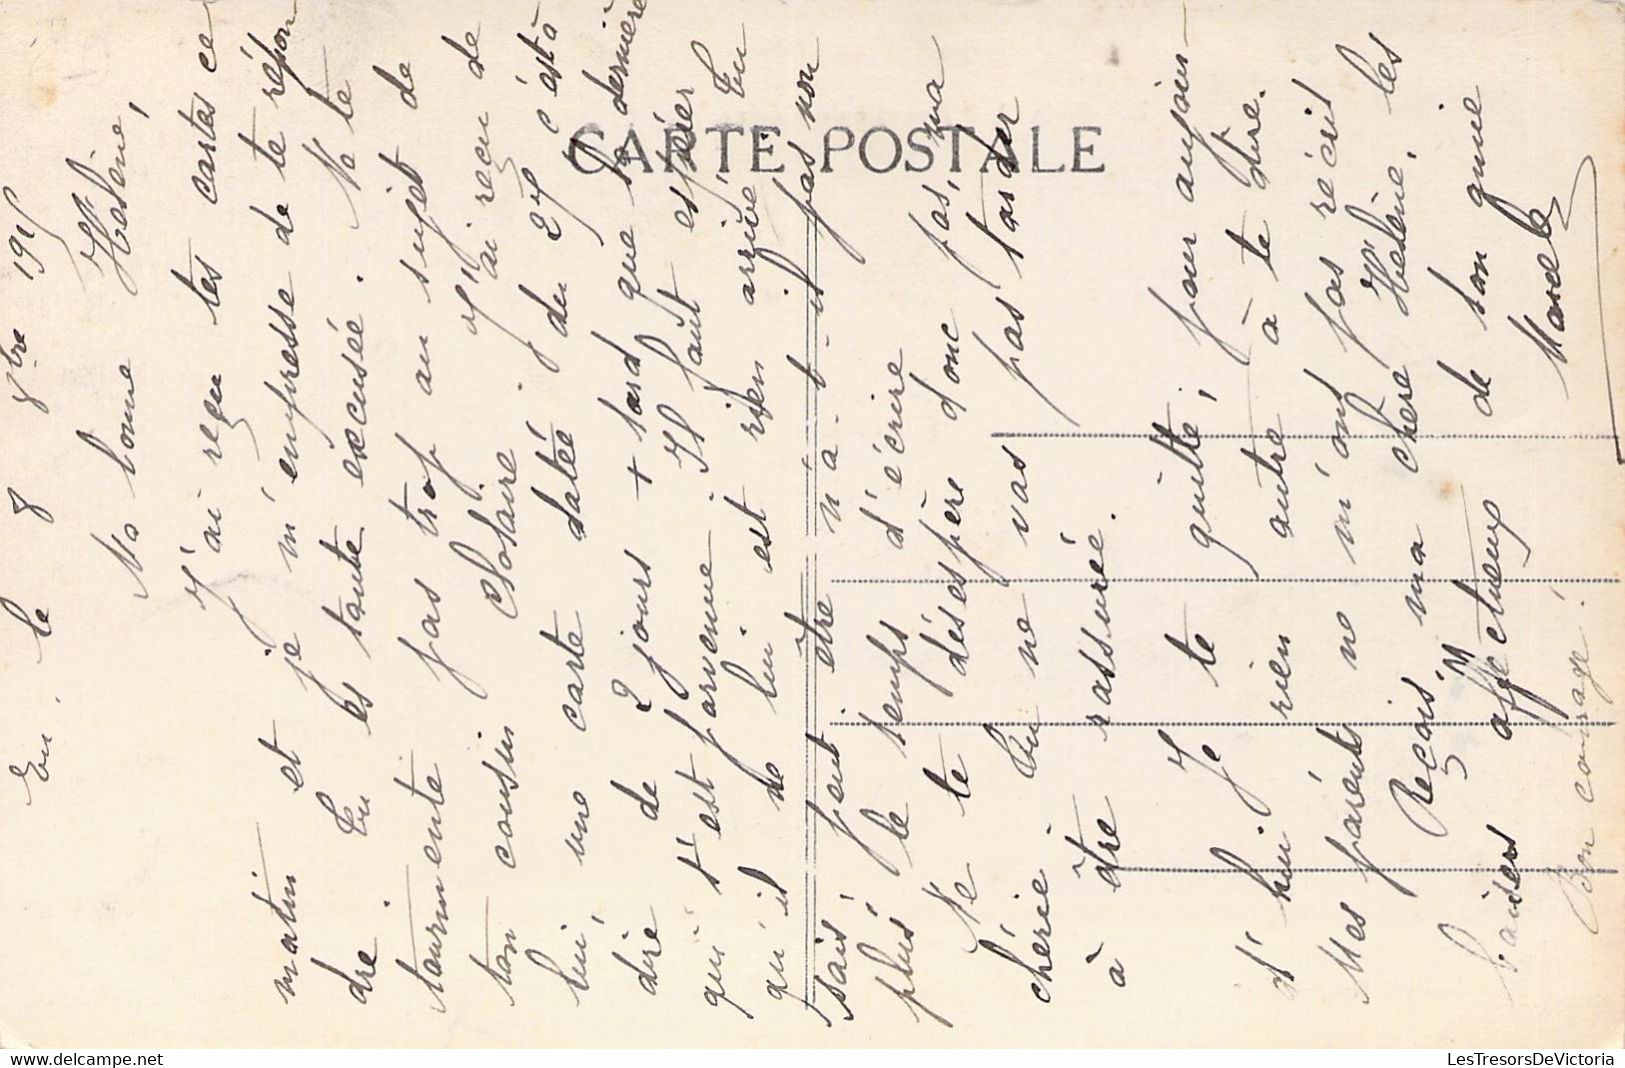 Eu, le 8 8bre 1915
Ma bonne Hélène,
J'ai reçu tes cartes ce
matin et je m'empresse de te répon
dre. Tu es toute excusée. Ne te
tourmente pas trop au sujet de
ton cousin Clotaire. J'ai reçu de
lui, une carte datée du 27 c'est à
dire de 2 jours + tard que la dernière
qui t'est parvenue. Il faut espérer
qu'il ne lui est rien arrivé. Tu
sais, peut être n'a-t-il pas non
plus le temps d'écrire
Ne te désespère donc pas, ma
chérie. Tu ne vas pas tarder
à être rassurée.
Je te quitte, pour aujour-
d'hui. rien autre à te dire.
Mes parents ne m'ont pas récrit
Reçois, ma chère Hélène, les
baisers affectueux de ton amie
Marcelle
Bon courage!
CARTE POSTALE
www.delcampe.net
LesTresorsDeVictoria